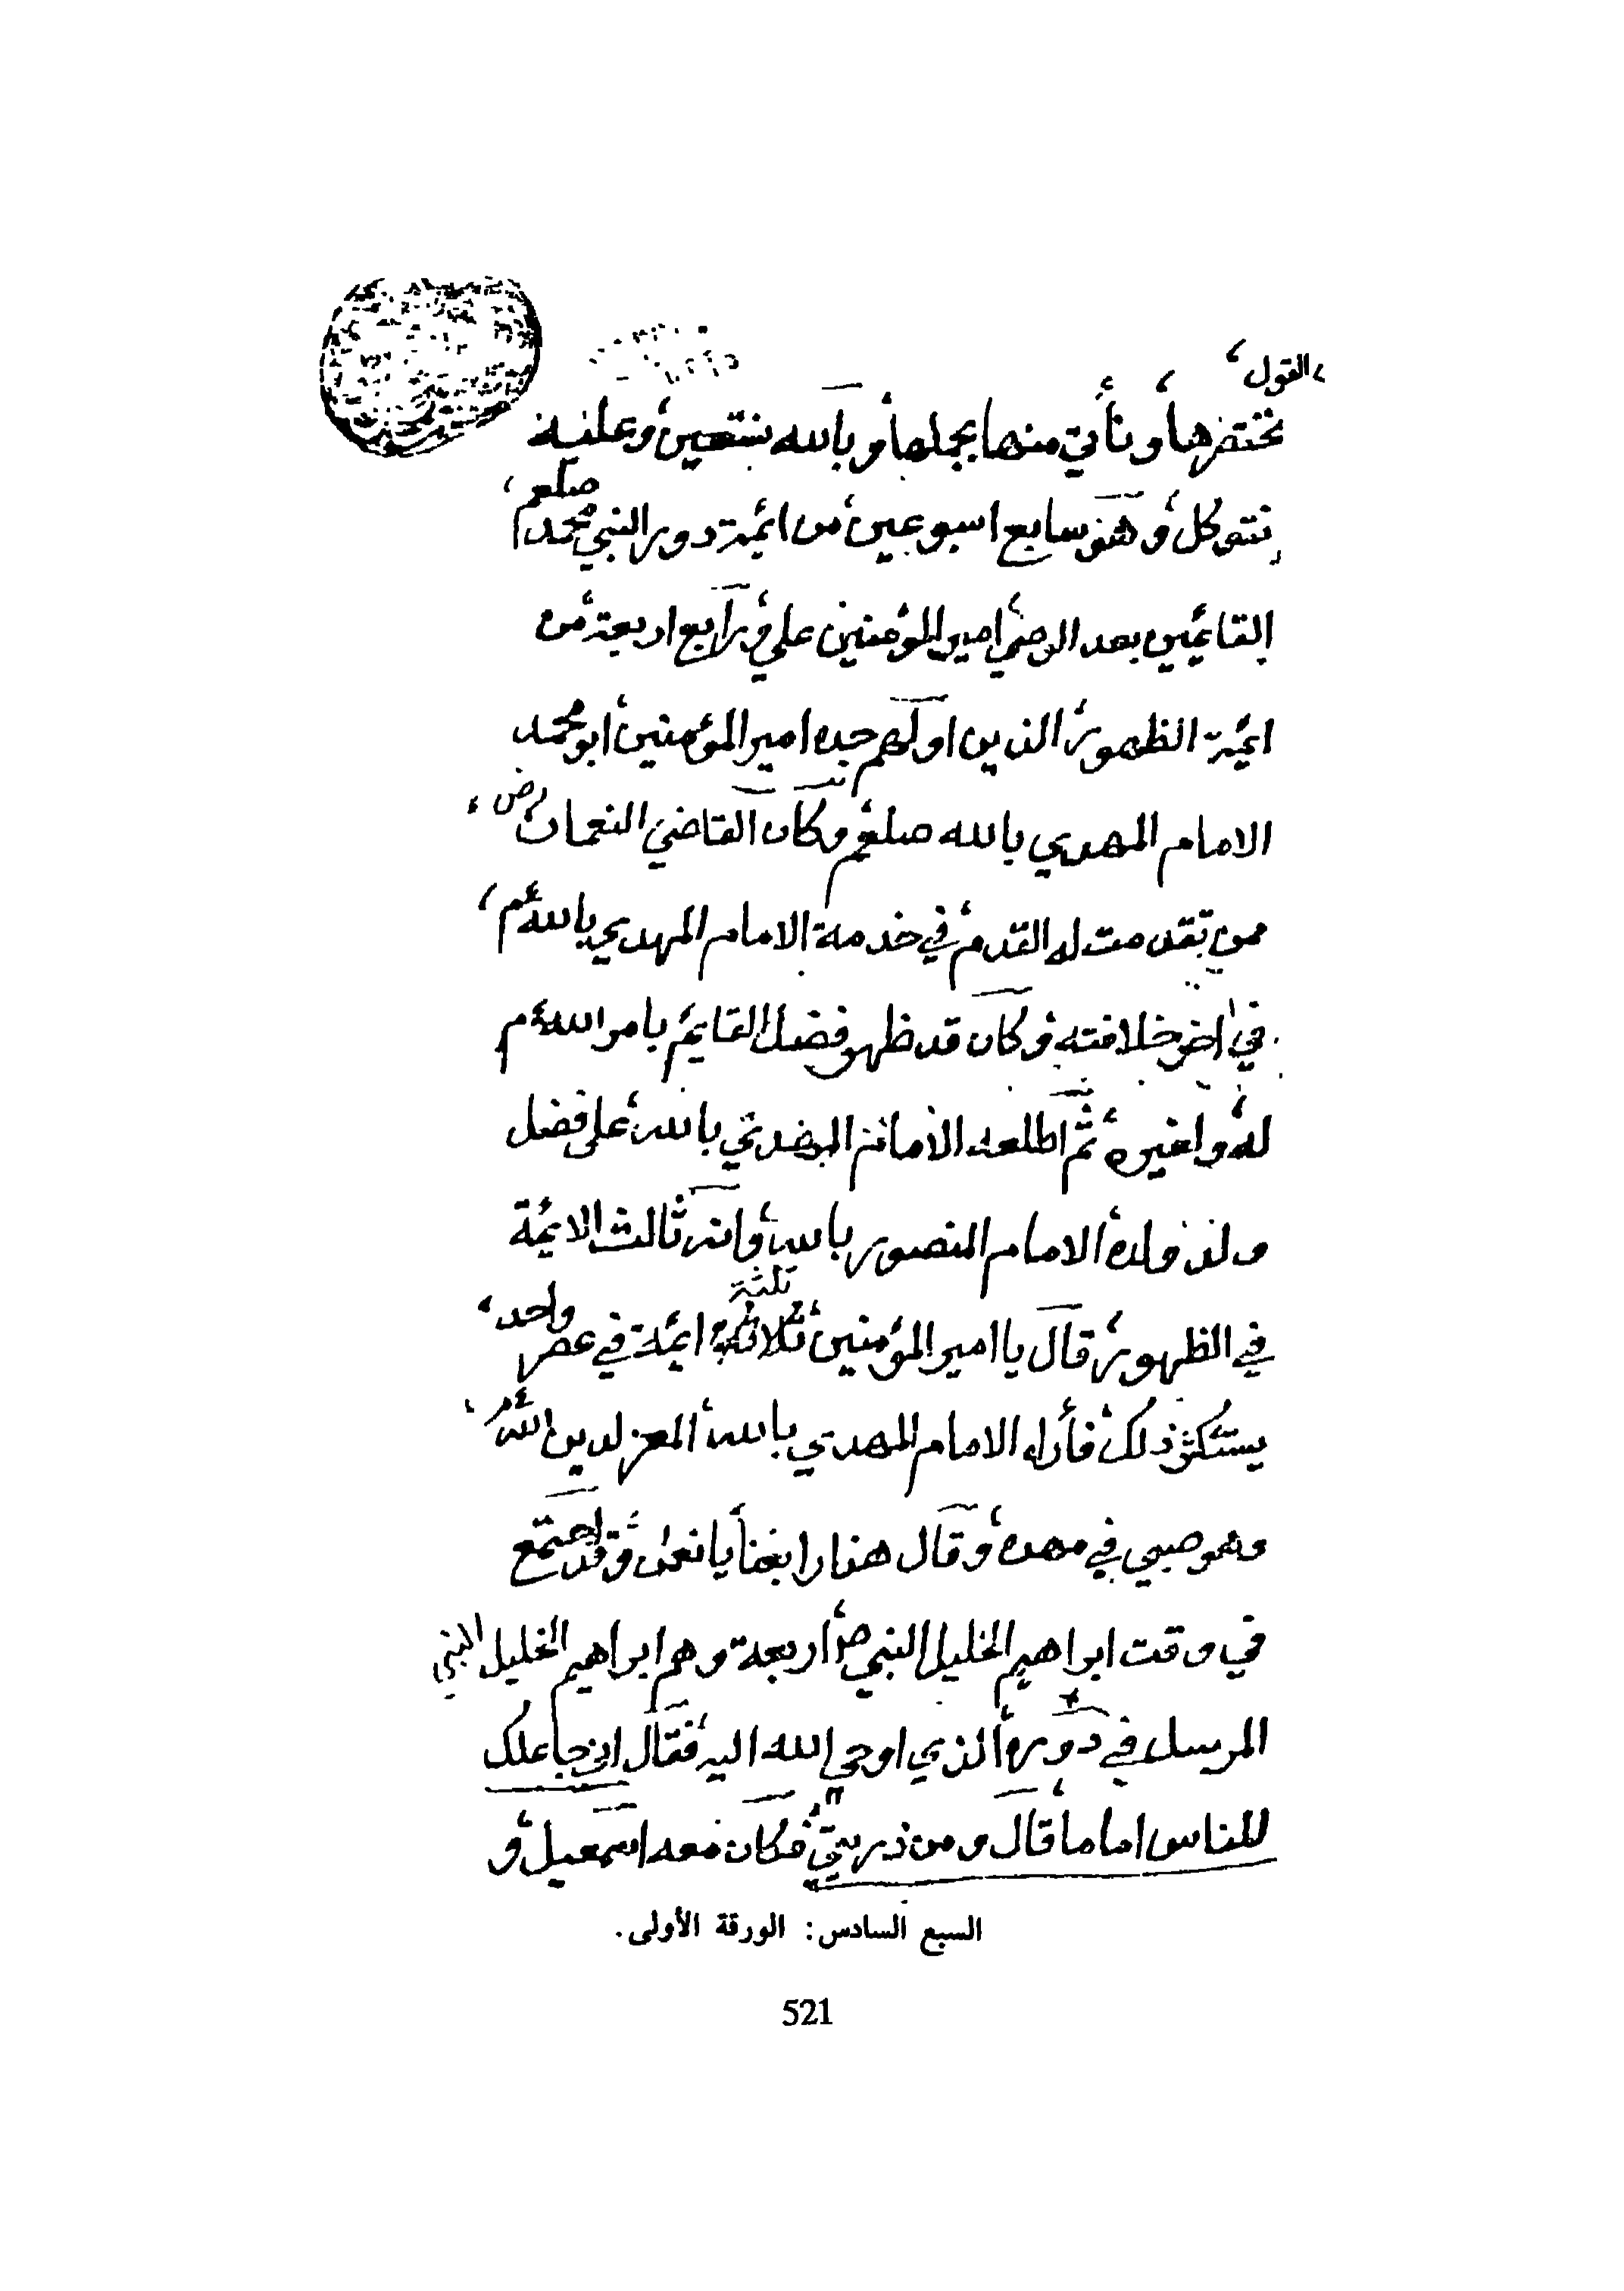 القول
نختصرها ونأتي منها بجملها وبالله نستعين وعليه
نتوكل وهو سابع اسبوعين من ايمة دور النبي محمد صلعم
القايمين بعد الوصي امير المؤمنين علي ورابع اربعة من
ايمة الظهور الذين اولهم جده امير المؤمنين ابو محمد
الامام المهدي بالله صلعم وكان القاضي النعمان رض
ممن تقدمت له القدم في خدمة الامام المهدي بالله ءم
في اخر خلافته وكان قد ظهر فضل القايم بامر الله ءم
له ولغيره ثم اطلعه الامام المهدي بالله على فضل
ولد ولده الامام المنصور بالله وانه ثالث الايمة
في الظهور قال يا امير المؤمنين ثلاثة ثلثة ايمة في عصر واحد
يستكثر ذلك فأراه الامام المهدي بالله المعز لدين الله ءم
وهو صبي في مهده وقال هذا رابعنا يا نعمن وقد اجتمع
في وقت ابراهيم الخليل النبي ص اربعة وهم ابراهيم الخليل النبي
المرسل في دوره الذي اوحى الله اليه فقال اني جاعلك
للناس اماما قال ومن ذريتي فكان معه اسمعيل و
السبع السادس: الورقة الأولى.
521